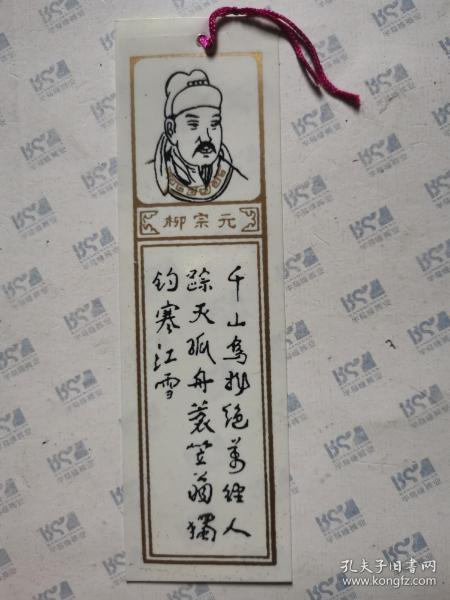 柳宗元
千山鸟飞绝万径人
踪灭孤舟蓑笠翁独
钓寒江雪
孔夫子旧书网
www.kongfz.com